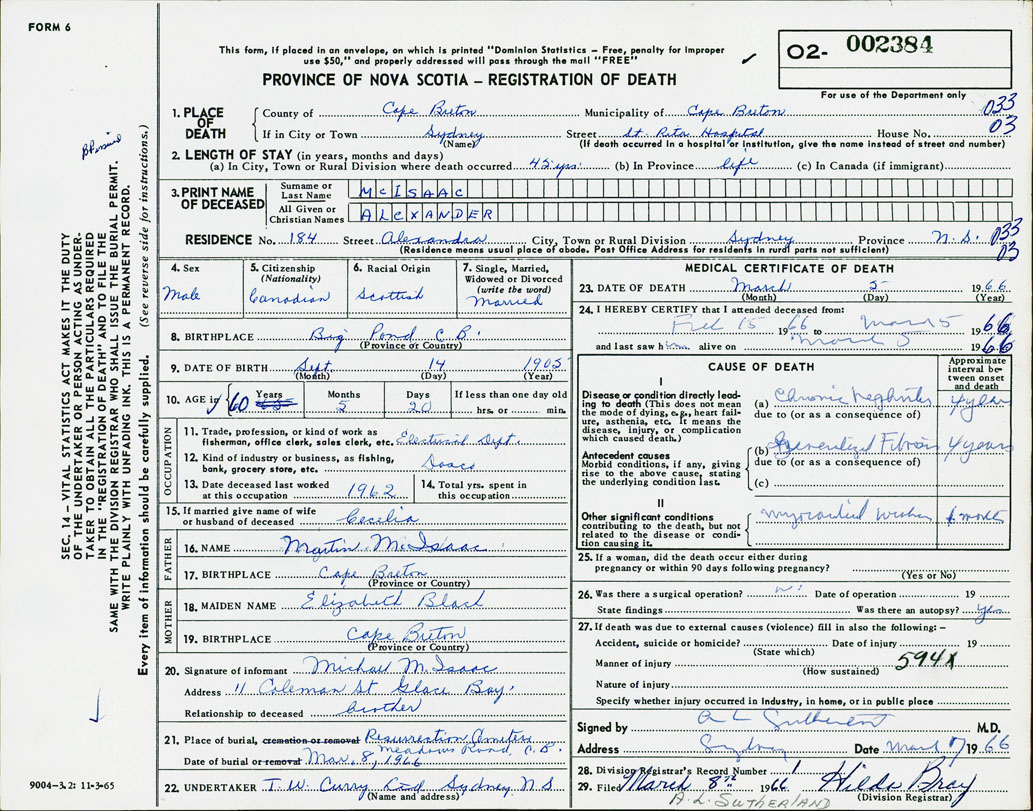 FORM 6
This form, if placed in an envelope, on which is printed "Dominion Statistics – Free, penalty for improper
use $50," and properly addressed will pass through the mail "FREE"
O2- 002384
For use of the Department only
PROVINCE OF NOVA SCOTIA – REGISTRATION OF DEATH
1. PLACE OF DEATH County of Cape Breton Municipality of Cape Breton 033
If in City or Town Sydney Street St. Rita Hospital House No. 03
(Name) (If death occurred in a hospital or institution, give the name instead of street and number)
2. LENGTH OF STAY (in years, months and days)
(a) In City, Town or Rural Division where death occurred 45 yrs. (b) In Province life (c) In Canada (if immigrant)
3. PRINT NAME OF DECEASED Surname or Last Name McISAAC
All Given or Christian Names ALEXANDER
RESIDENCE No. 184 Street Alexandra City, Town or Rural Division Sydney Province N.S. 033
(Residence means usual place of abode. Post Office Address for residents in rural parts not sufficient) 03
4. Sex Male
5. Citizenship (Nationality) Canadian
6. Racial Origin Scottish
7. Single, Married, Widowed or Divorced (write the word) Married
8. BIRTHPLACE Big Pond C.B.
(Province or Country)
9. DATE OF BIRTH Sept. 14 1905
(Month) (Day) (Year)
10. AGE in 60 Years Months 5 Days 20 If less than one day old
hrs. or min.
OCCUPATION
11. Trade, profession, or kind of work as
fisherman, office clerk, sales clerk, etc. Electrical Dept.
12. Kind of industry or business, as fishing,
bank, grocery store, etc. Dosco
13. Date deceased last worked
at this occupation 1962
14. Total yrs. spent in
this occupation
15. If married give name of wife
or husband of deceased Cecilia
FATHER
16. NAME Martin McIsaac
17. BIRTHPLACE Cape Breton
(Province or Country)
MOTHER
18. MAIDEN NAME Elizabeth
19. BIRTHPLACE Cape Breton
(Province or Country)
20. Signature of informant Michael McIsaac
Address 11 Coleman St Glace Bay
Relationship to deceased brother
21. Place of burial, cremation or removal Resurrection Cemetery
Meadows Road, C.B.
Date of burial or removal Mar. 8, 1966
22. UNDERTAKER T.W. Curry Sydney N S
(Name and address)
MEDICAL CERTIFICATE OF DEATH
23. DATE OF DEATH March 5 1966
(Month) (Day) (Year)
24. I HEREBY CERTIFY that I attended deceased from:
Feb 15 1966 to March 5 1966
and last saw him alive on March 5 1966
CAUSE OF DEATH
Approximate interval between onset and death
I
Disease or condition directly leading to death (This does not mean the mode of dying, e.g., heart failure, asthenia, etc. It means the disease, injury, or complication which caused death.)
(a) Chronic Nephritis 4 years
due to (or as a consequence of)
Antecedent causes
Morbid conditions, if any, giving rise to the above cause, stating the underlying condition last.
(b) Generalized Fibrosis 4 years
due to (or as a consequence of)
(c)
II
Other significant conditions contributing to the death, but not related to the disease or condition causing it.
myocardial months
25. If a woman, did the death occur either during
pregnancy or within 90 days following pregnancy?
(Yes or No)
26. Was there a surgical operation? Date of operation 19
State findings Was there an autopsy? yes
27. If death was due to external causes (violence) fill in also the following: –
Accident, suicide or homicide? Date of injury 19
(State which)
Manner of injury 594X
(How sustained)
Nature of injury
Specify whether injury occurred in industry, in home, or in public place
Signed by A L Sutherland M.D.
Address Sydney Date March 7 1966
28. Division Registrar's Record Number
29. Filed March 8th 1966 Hilda Bray
(Division Registrar)
A.L. SUTHERLAND
SEC. 14 – VITAL STATISTICS ACT MAKES IT THE DUTY
OF THE UNDERTAKER OR PERSON ACTING AS UNDER-
TAKER TO OBTAIN ALL THE PARTICULARS REQUIRED
IN THE "REGISTRATION OF DEATH" AND TO FILE THE
SAME WITH THE DIVISION REGISTRAR WHO SHALL ISSUE THE BURIAL PERMIT.
WRITE PLAINLY WITH UNFADING INK. THIS IS A PERMANENT RECORD.
Every item of information should be carefully supplied. (See reverse side for instructions.)
9004–3.2: 11-3-65